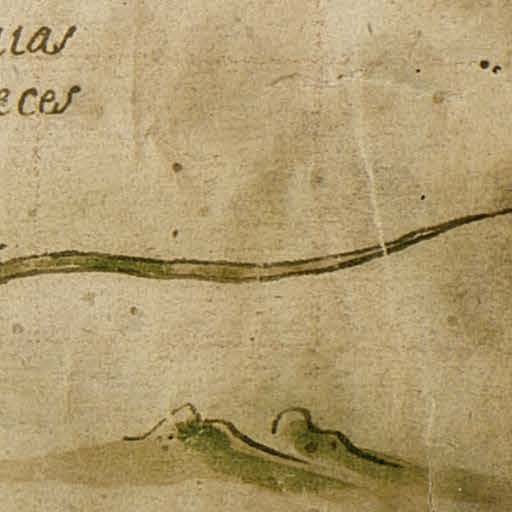 uas
eces